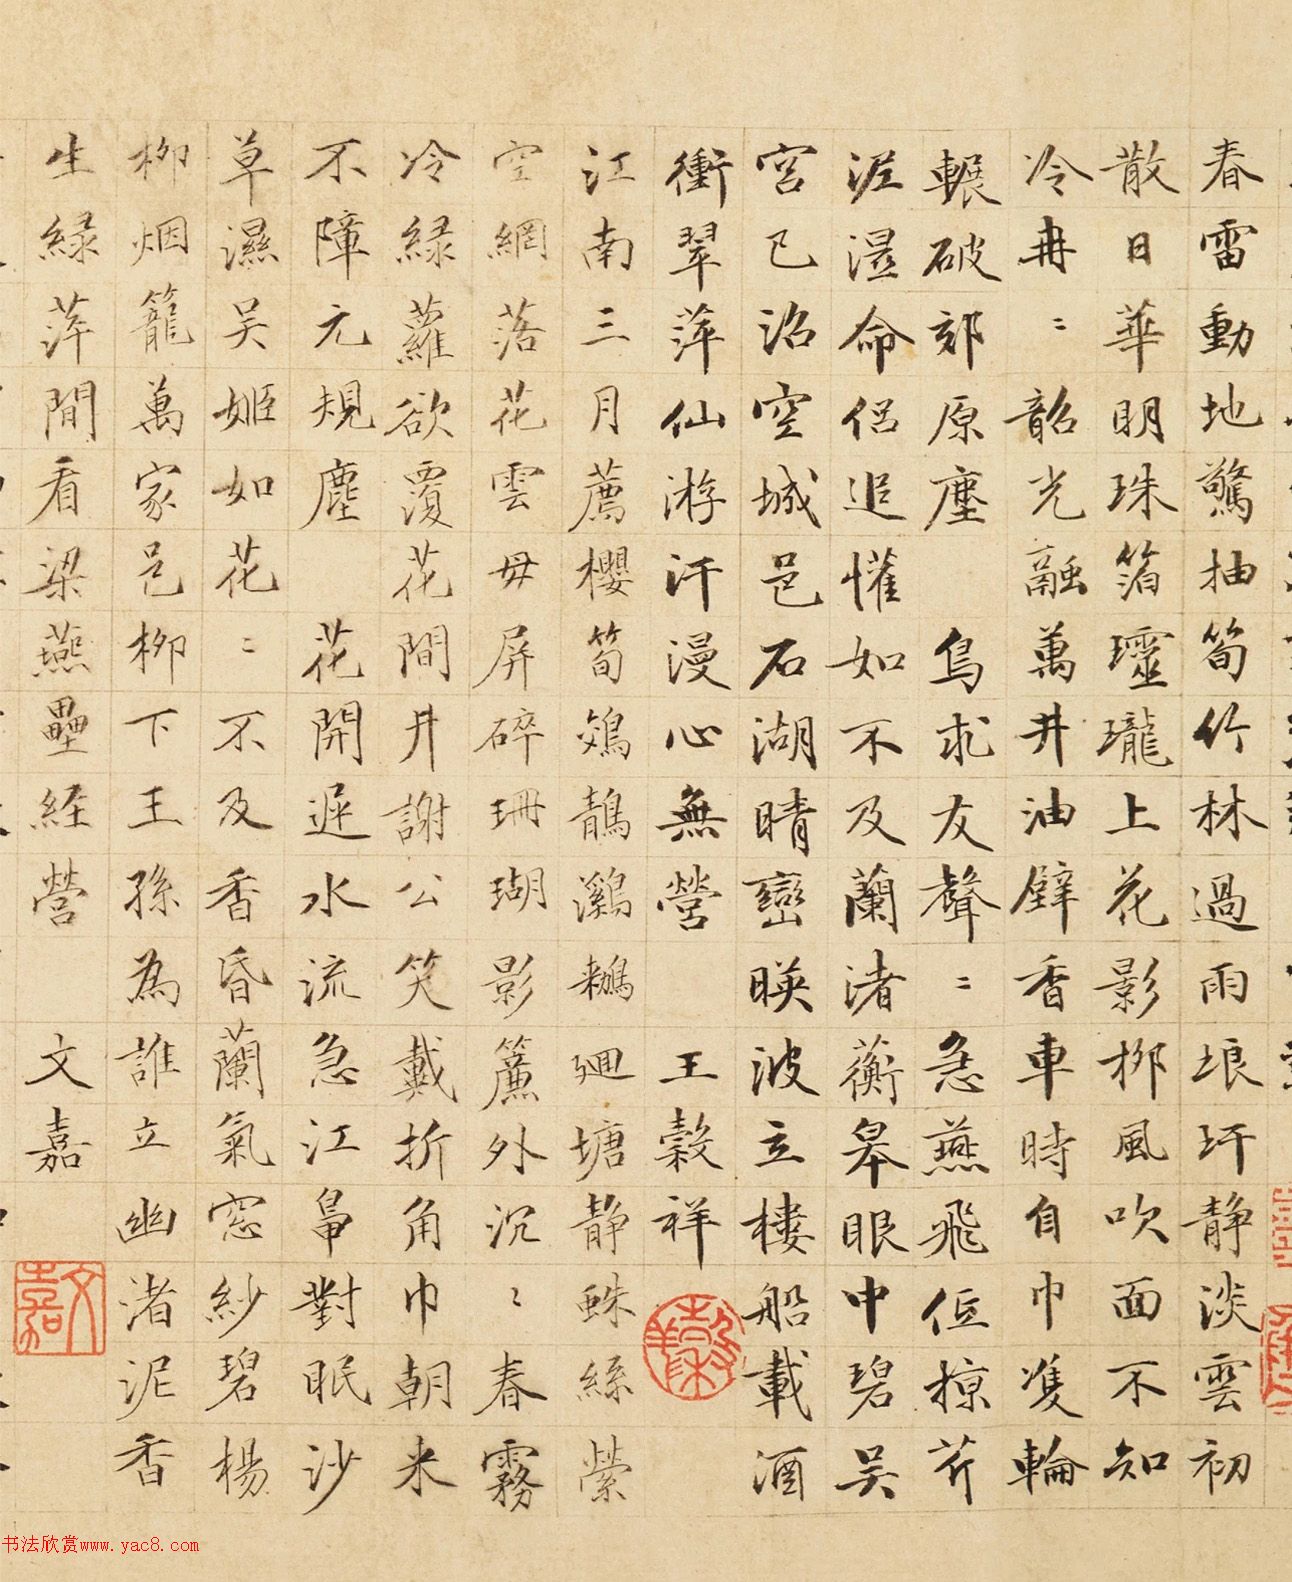 春雷動地驚抽筍竹林過雨埌圩静淡雲初
散日華明珠箔瓏上花影柳風吹面不知
冷冉〻韶光融萬井油壁香車時自巾隻輪
輾破郊原塵 鳥求友聲〻急燕飛低掠芹
泥濕命侶追懽如不及蘭渚蘅皋眼中碧吴
宮已沼空城邑石湖晴巒暎波立樓船載酒
衝翠萍仙游汗漫心無營 王穀祥
江南三月薦櫻筍鵁鶄鸂鶒迴塘静蛛絲縈
空網落花雲母屏碎珊瑚影簾外沉〻春霧
冷緑蘿欲覆花間井謝公笑戴折角巾朝来
不障元規塵 花開遲水流急江皐對眠沙
草濕吴姬如花〻不及香昏蘭氣窓紗碧楊
柳烟籠萬家邑柳下王孫為誰立幽渚泥香
生緑萍閒看梁燕壘経營 文嘉
文嘉
书法欣赏www.yac8.com